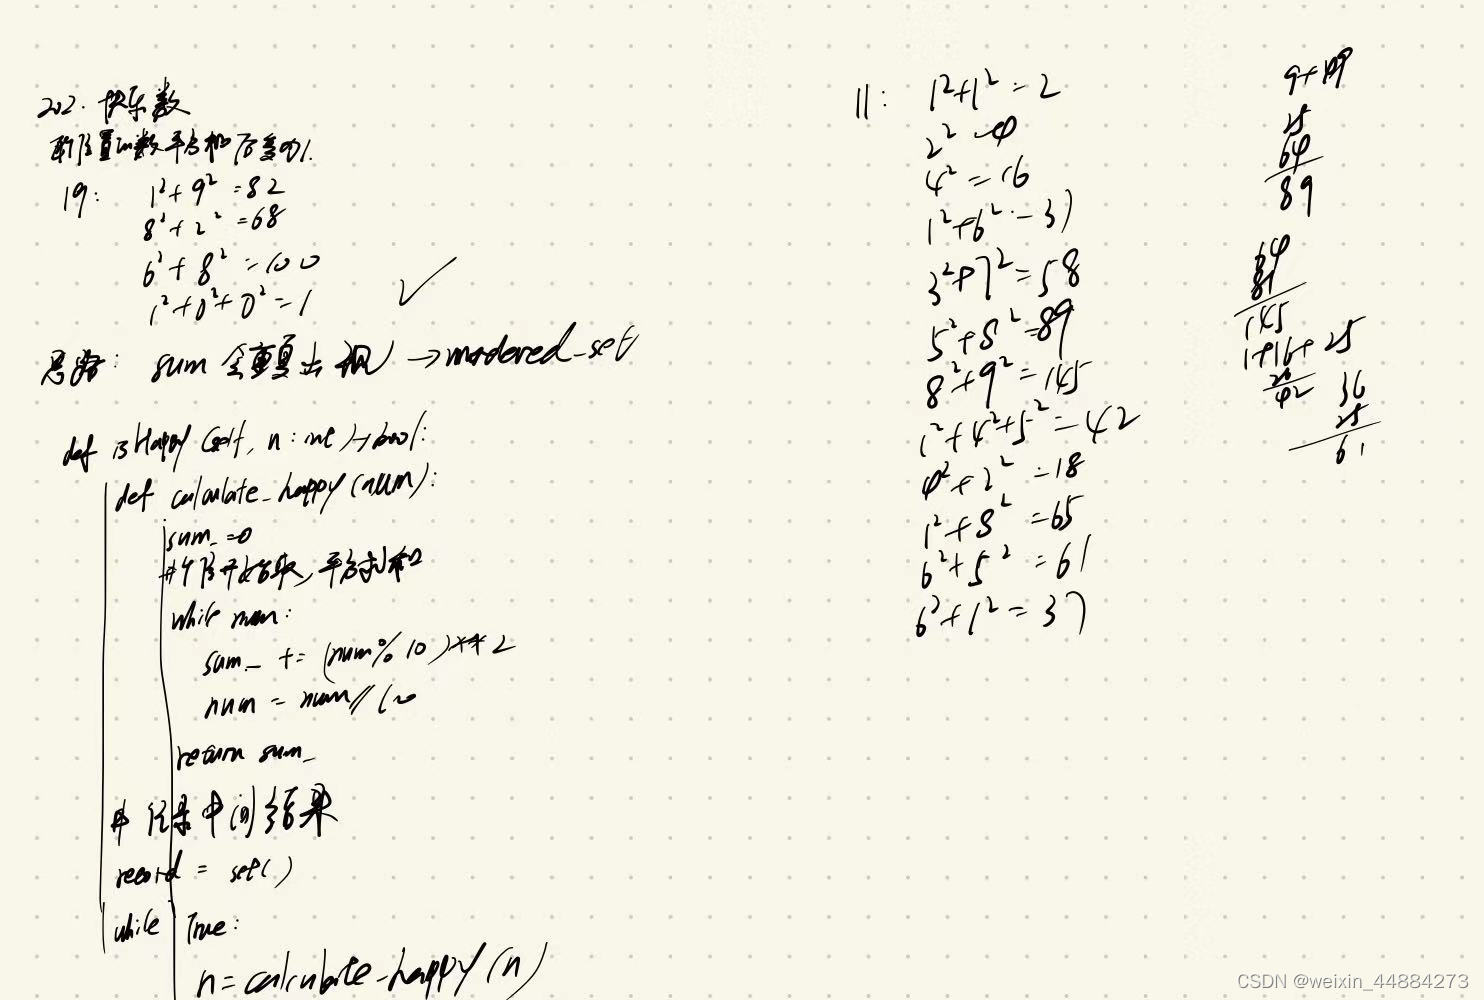 202. 快乐数
每个位置的数平方和后变为1.
19: 1²+9²=82
8²+2²=68
6²+8²=100
1²+0²+0²=1
思路: sum会重复出现 → unordered_set
def isHappy(self, n:int)→bool:
def calculate_happy(num):
sum_=0
#个位开始取,平方求和
while num:
sum_ += (num%10)**2
num = num//10
return sum_
# 记录中间结果
record = set()
while True:
n=calculate_happy(n)
11: 1²+1²=2
2²=4
4²=16
1²+6²=37
3²+7²=58
5²+8²=89
8²+9²=145
1²+4²+5²=42
4²+2²=18
1²+8²=65
6²+5²=61
6²+1²=37
25
64
89
64
81
145
1+16+25
42
36
25
61
CSDN @weixin_44884273